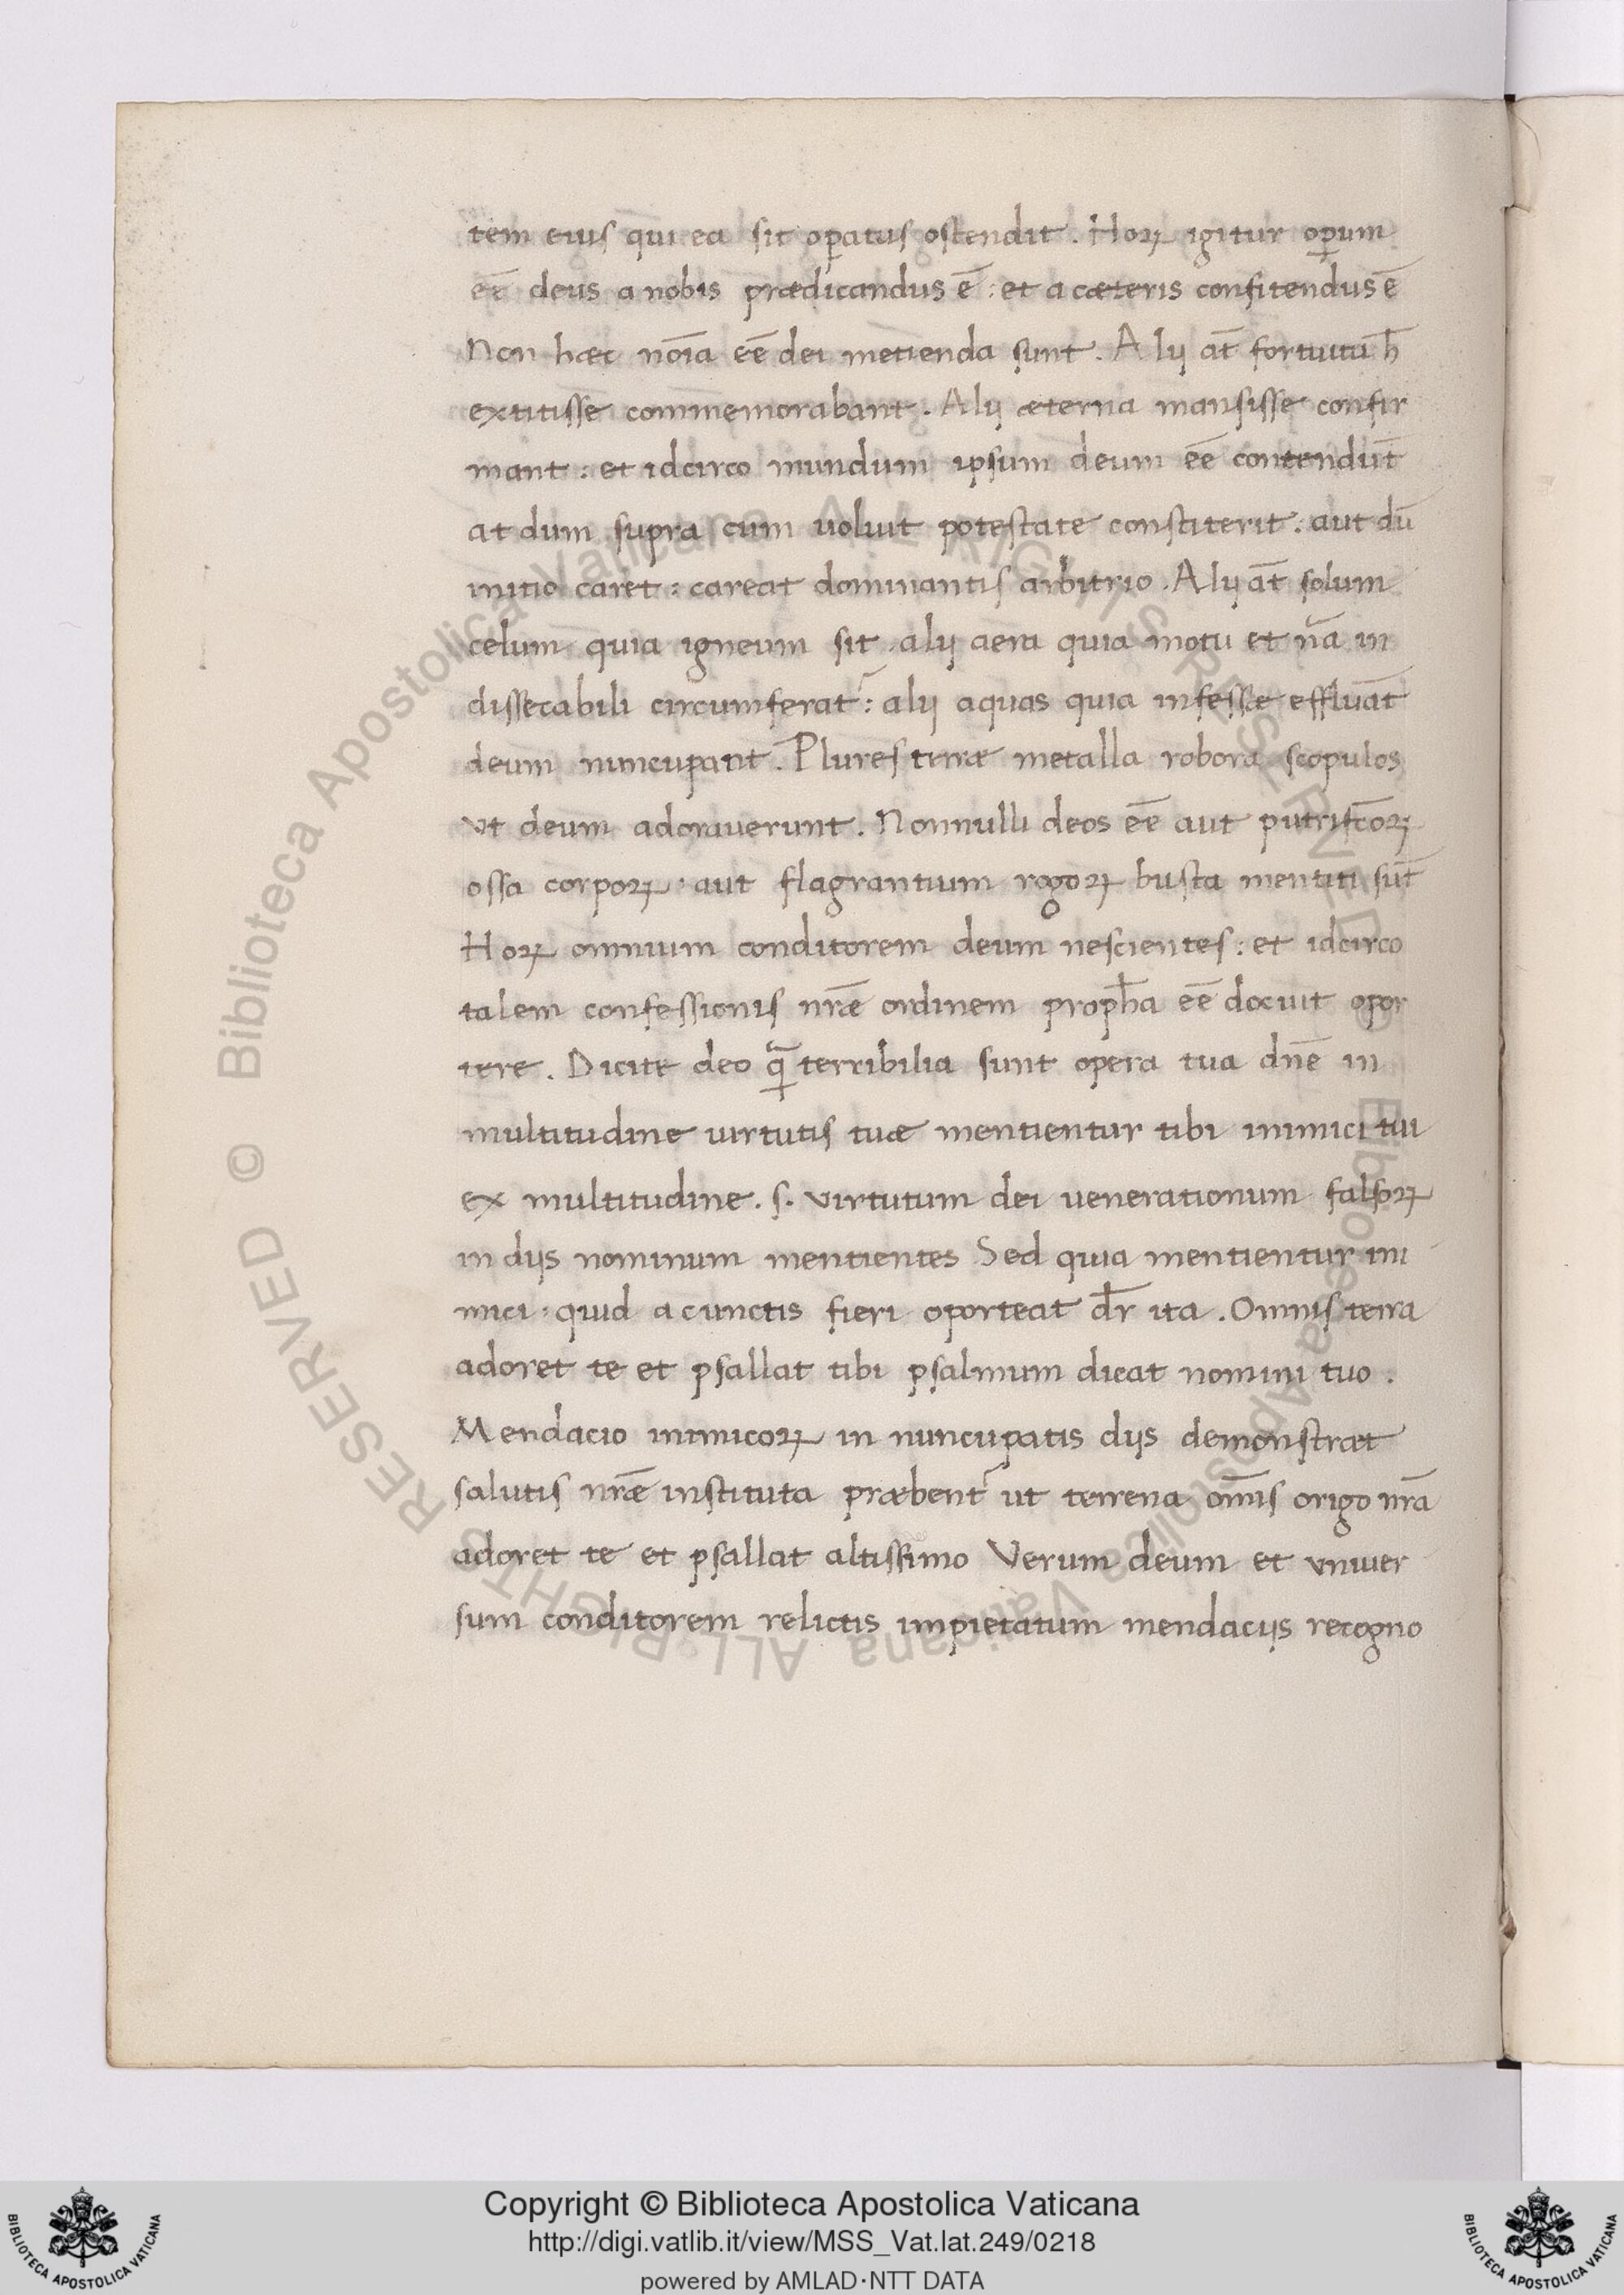 tem eius qui ea sit oꝑatus ostendit . Hoꝝ igitur oꝑum
eē deus a nobis prædicandus ē : et a cæteris confitendus ē
Non hæc noīa eē dei metienda sunt . Alij āt fortuitu h̄
extitisse commemorabant . Alij æterna mansisse confir
mant : et idcirco mundum ipsum deum eē contendūt
at dum supra cum voluit potestate constiterit . aut dū
initio caret : careat dominantis arbitrio . Alij āt solum
celum quia igneum sit alij aera quia motu et nā in
dissecabili circumferat᷑ : alij aquas quia infessæ effluāt
deum nuncupant . Plures terræ metalla robora scopulos
vt deum adorauerunt . Nonnulli deos eē aut putriscōꝝ
ossa corpoꝝ . aut flagrantium rogoꝝ busta mentiti sūt
Hoꝝ omnium conditorem deum nescientes : et idcirco
talem confessionis nr̄æ ordinem proph̄a eē docuit opor
tere . Dicite deo ꝙ̄ terribilia sunt opera tua dn̄e in
multitudine uirtutis tuæ mentientur tibi inimici tui
ex multitudine . s . virtutum dei uenerationum falsoꝝ
in dijs nominum mentientes Sed quia mentientur ini
mici : quid a cunctis fieri oporteat dr̄ ita . Omnis terra
adoret te et psallat tibi psalmum dicat nomini tuo .
Mendacio inimicoꝝ in nuncupatis dijs demonstræt
salutis nr̄æ instituta præbent᷑ ut terrena om̄is origo nr̄a
adoret te et psallat altissimo Verum deum et vniuer
sum conditorem relictis impietatum mendacijs recogno
© Biblioteca Apostolica Vaticana ALL RIGHTS RESERVED
© Biblioteca Apostolica Vaticana ALL RIGHTS RESERVED
Copyright © Biblioteca Apostolica Vaticana
http://digi.vatlib.it/view/MSS_Vat.lat.249/0218
powered by AMLAD·NTT DATA
BIBLIOTECA APOSTOLICA VATICANA
BIBLIOTECA APOSTOLICA VATICANA